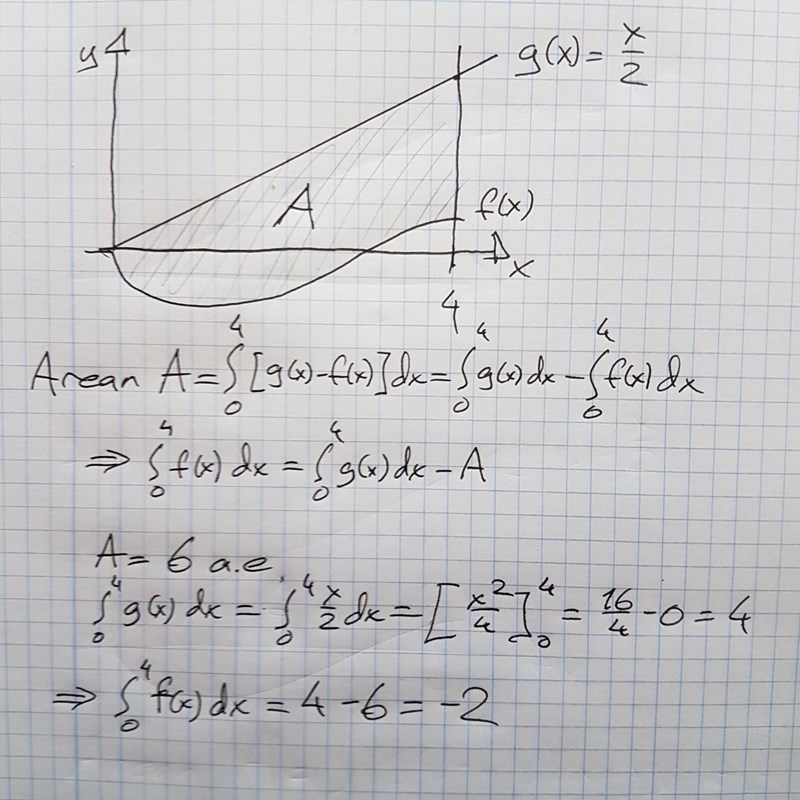 y
g(x) = x/2
A
f(x)
x
4
Arean A = ∫₀⁴ [g(x)-f(x)] dx = ∫₀⁴ g(x) dx - ∫₀⁴ f(x) dx
⇒ ∫₀⁴ f(x) dx = ∫₀⁴ g(x) dx - A
A = 6 a.e.
∫₀⁴ g(x) dx = ∫₀⁴ x/2 dx = [x²/4]₀⁴ = 16/4 - 0 = 4
⇒ ∫₀⁴ f(x) dx = 4 - 6 = -2